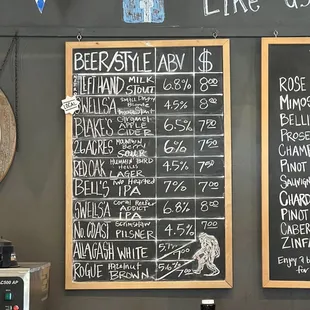 Like us
BEER/STYLE ABV $
LEFT HAND MILK STOUT 6.8% 8.00
SWELLS'A 4.5% 8.00
BLAKES Caramel APPLE CIDER 6.5% 7.50
26 ACRES Mountain Berry SOUR 6% 7.50
RED OAK Hummin' Bird Helles LAGER 4.5 7.50
BELL'S Two Hearted IPA 7% 7.00
SWELLS'A Coral Reefer ADDICT IPA 6.8% 8.00
No. COAST Scrimshaw PILSNER 4.5% 7.00
ALLAGASH WHITE 5.2%
ROGUE Hazelnut BROWN 5.6% 7.00
LOCAL
ROSE
MIMOS
BELLI
PROSE
CHAMP
PINOT
SAUVIGN
CHARD
PINOT
CABER
ZINFA
Enjoy a